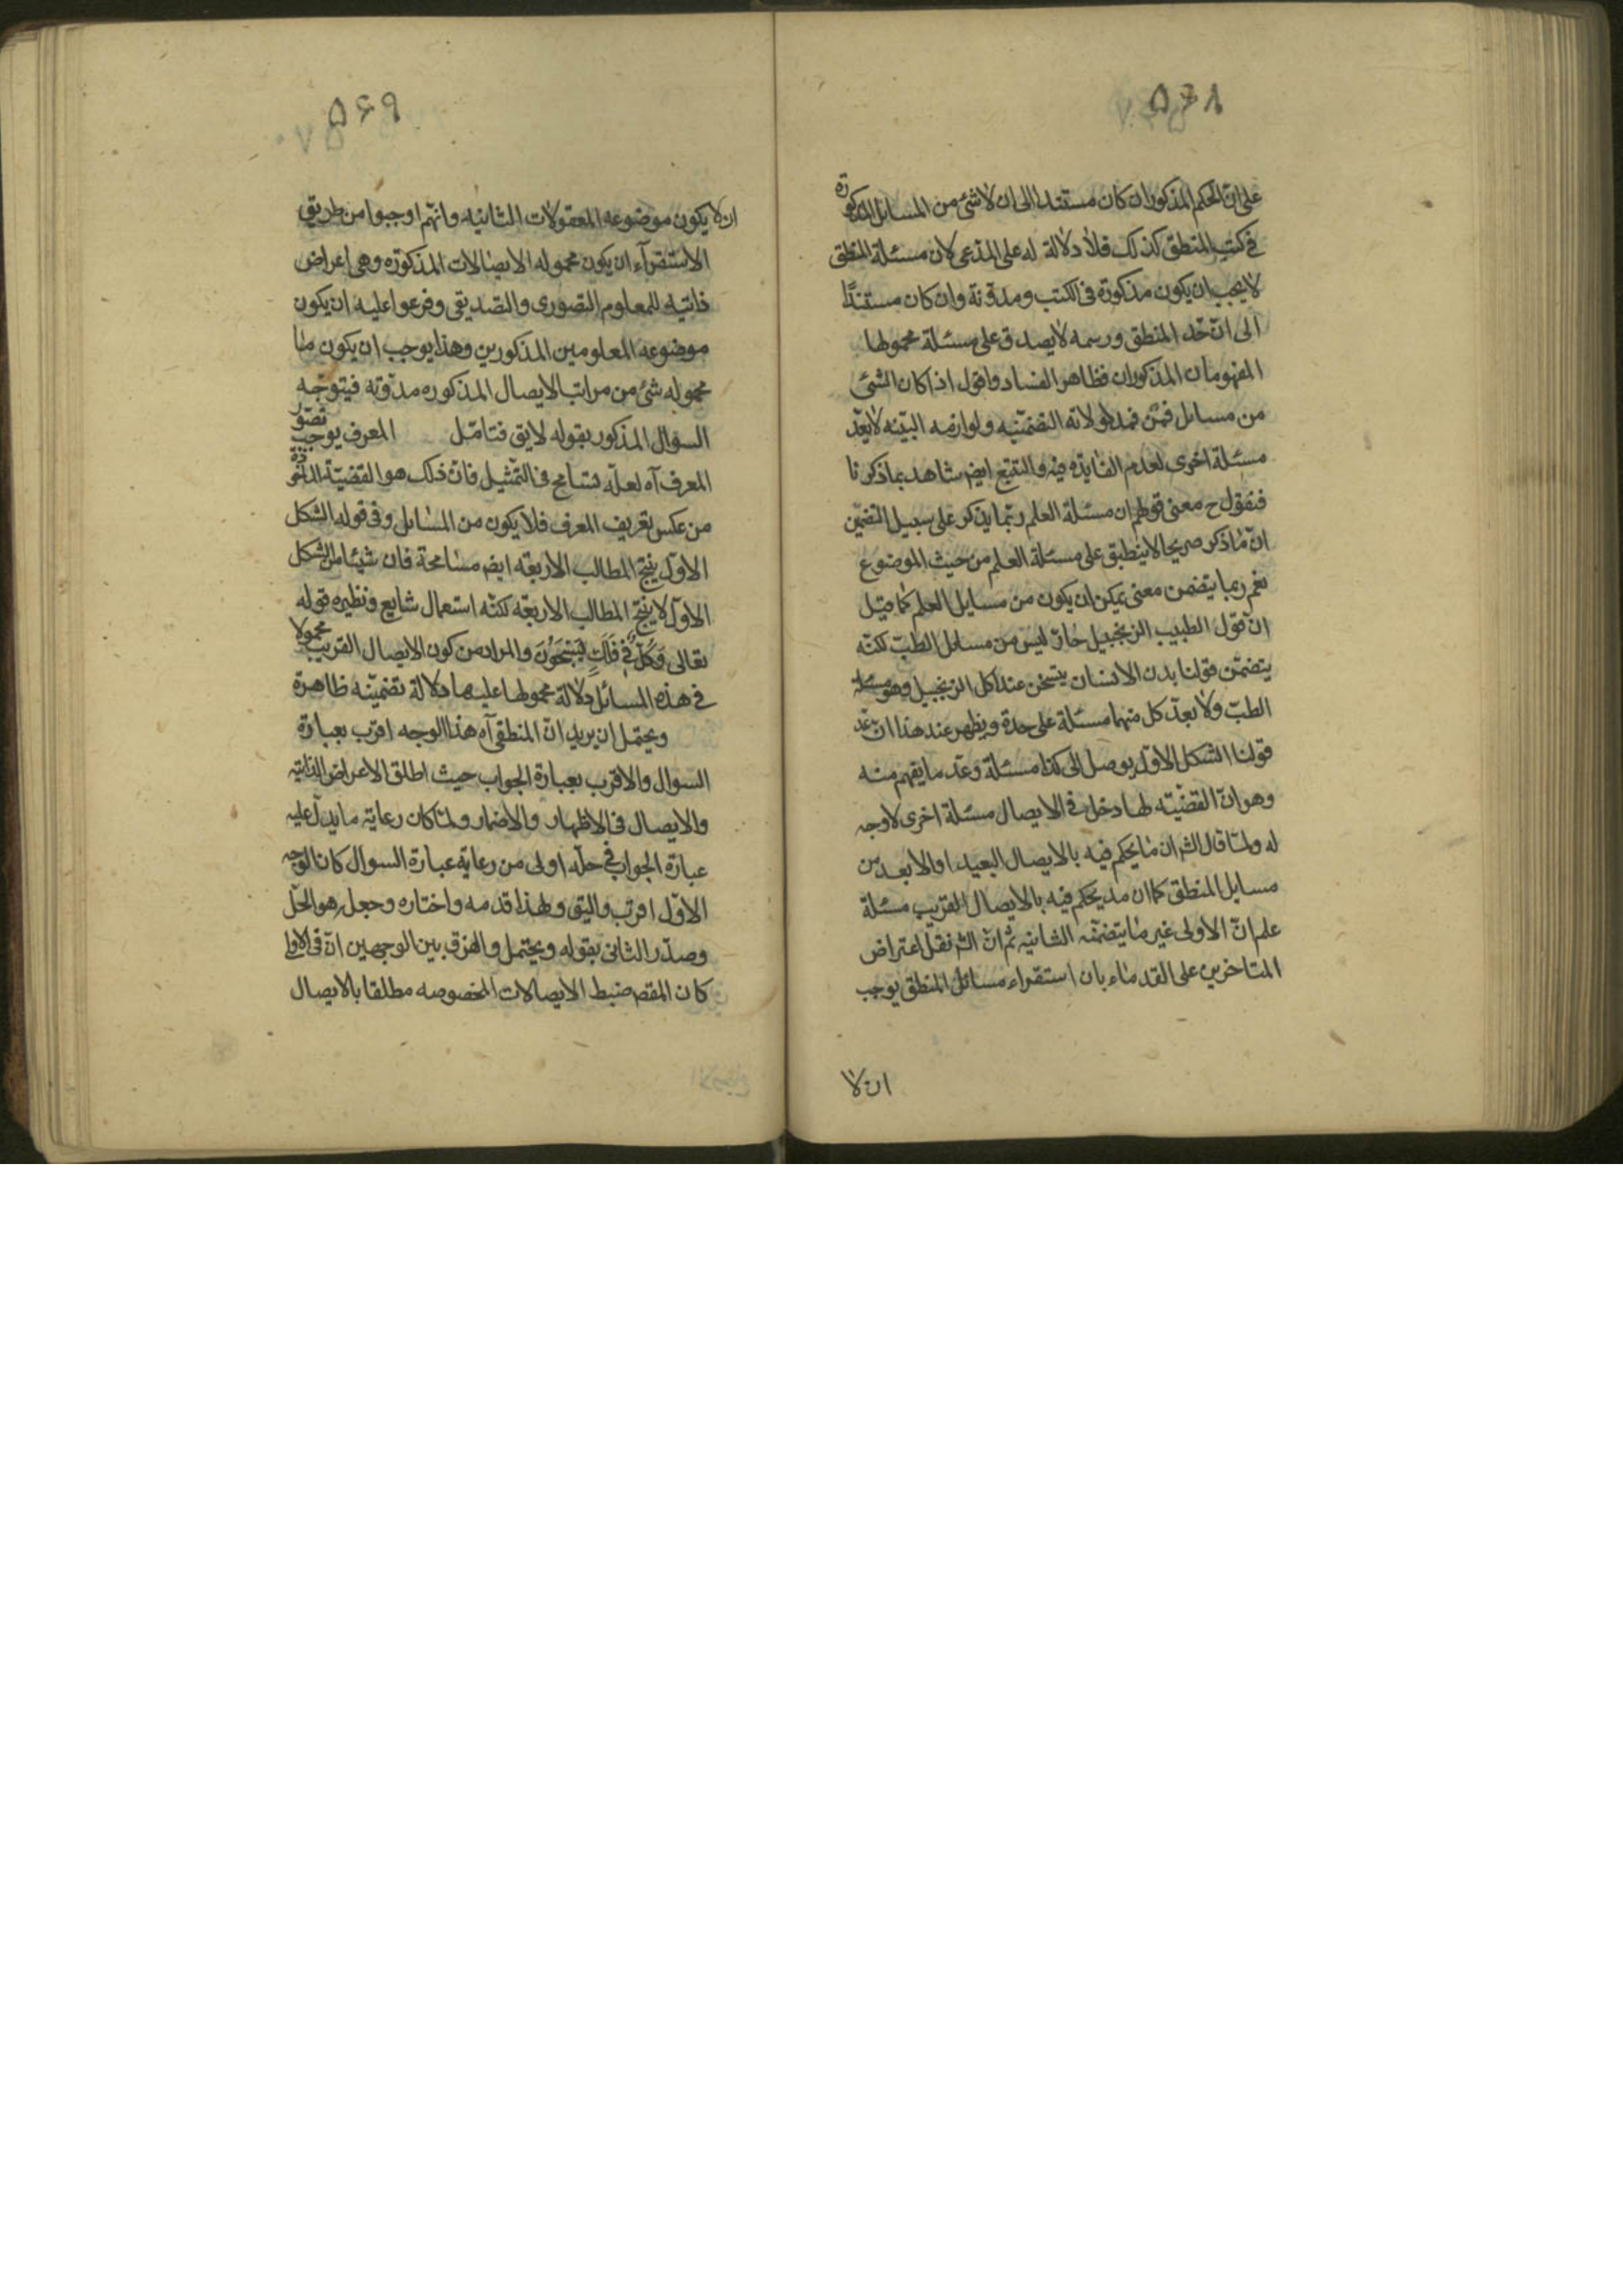 ۵۶۸
على ان الحكم المذكور ان كان مستندا الى ان لا شئ من المسائل المذكورة
فى كتب المنطق كذلك فلا دلالة له على المدعى لان مسئلة المنطق
لا يجب ان يكون مذكورة فى الكتب ومدونة وان كان مستندًا
الى ان حد المنطق ورسمه لا يصدق على مسئلة محمولها
المفهومان المذكوران فظاهر الفساد واقول اذا كان الشئ
من مسائل فن فمدلولاته التضمنيه ولوازمه البينه لا يعد
مسئلة اخرى لعدم الفايده فيه والتتبع ايضا شاهد بما ذكرنا
فنقول ح معنى قولهم ان مسئلة العلم ربما يذكر على سبيل التضمين
ان ما ذكر صريحا لا ينطبق على مسئلة العلم من حيث الموضوع
نعم ربما يتضمن معنى يمكن ان يكون من مسايل العلم كما قيل
ان قول الطبيب الزنجبيل حار ليس من مسائل الطب لكنه
يتضمن قولنا بدن الانسان يتسخن عند اكل الزنجبيل وهو مسئلة
الطب ولا يعد كل منهما مسئلة على حدة ويظهر عند هذا ان عد
قولنا الشكل الاول يوصل الى كذا مسئلة وعد ما يفهم منه
وهو ان القضيته لها دخل فى الايصال مسئلة اخرى لا وجه
له ولما قال الشر ان ما يحكم فيه بالايصال البعيد او الابعد من
مسايل المنطق كما ان مد يحكم فيه بالايصال القريب مسئلة
علم ان الاولى غير ما يتضمنه الثانيه ثم ان الشر نقل اعتراض
المتاخرين على القدماء بان استقراء مسائل المنطق يوجب
ان لا
۵۶۹
ان لا يكون موضوعه المعقولات الثانيه وانهم اوجبوا من طريق
الاستقرآء ان يكون محموله الايصالات المذكوره وهى اعراض
ذاتيه للمعلوم التصورى والتصديقى وفرعوا عليه ان يكون
موضوعه المعلومين المذكورين وهذا يوجب ان يكون ما
محموله شئ من مراتب الايصال المذكوره مدونه فيتوجه
السوال المذكور بقوله لايق فتامل المعرف يوجب تصور
المعرف آه لعله تسامح فى التمثيل فان ذلك هو القضية الماخوذه
من عكس تعريف المعرف فلا يكون من المسائل وفى قوله الشكل
الاول ينتج المطالب الاربعه ايضا مسامحة فان شيئا من الشكل
الاول لا ينتج المطالب الاربعه لكنه استعمال شايع ونظيره قوله
تعالى وَكُلٌّ فِى فَلَكٍ يَسْبَحُونَ والمراد من كون الايصال القريب محمولا
فى هذه المسائل دلالة محمولها عليها دلالة تضمنيه ظاهرة
ويحتمل ان يريد ان المنطقى آه هذا الوجه اقرب بعبارة
السوال والاقرب بعبارة الجواب حيث اطلق الاعراض الذاتيه
والايصال فى الاظهار والاضمار ولما كان رعاية ما يدل عليه
عبارة الجواب فى حله اولى من رعاية عبارة السوال كان الوجه
الاول اقرب واليق ولهذا قدمه واختاره وجعل هو الحل
وصدر الثانى بقوله ويحتمل والفرق بين الوجهين ان فى الاول
كان المقصد ضبط الايصالات المخصوصه مطلقا بالايصال